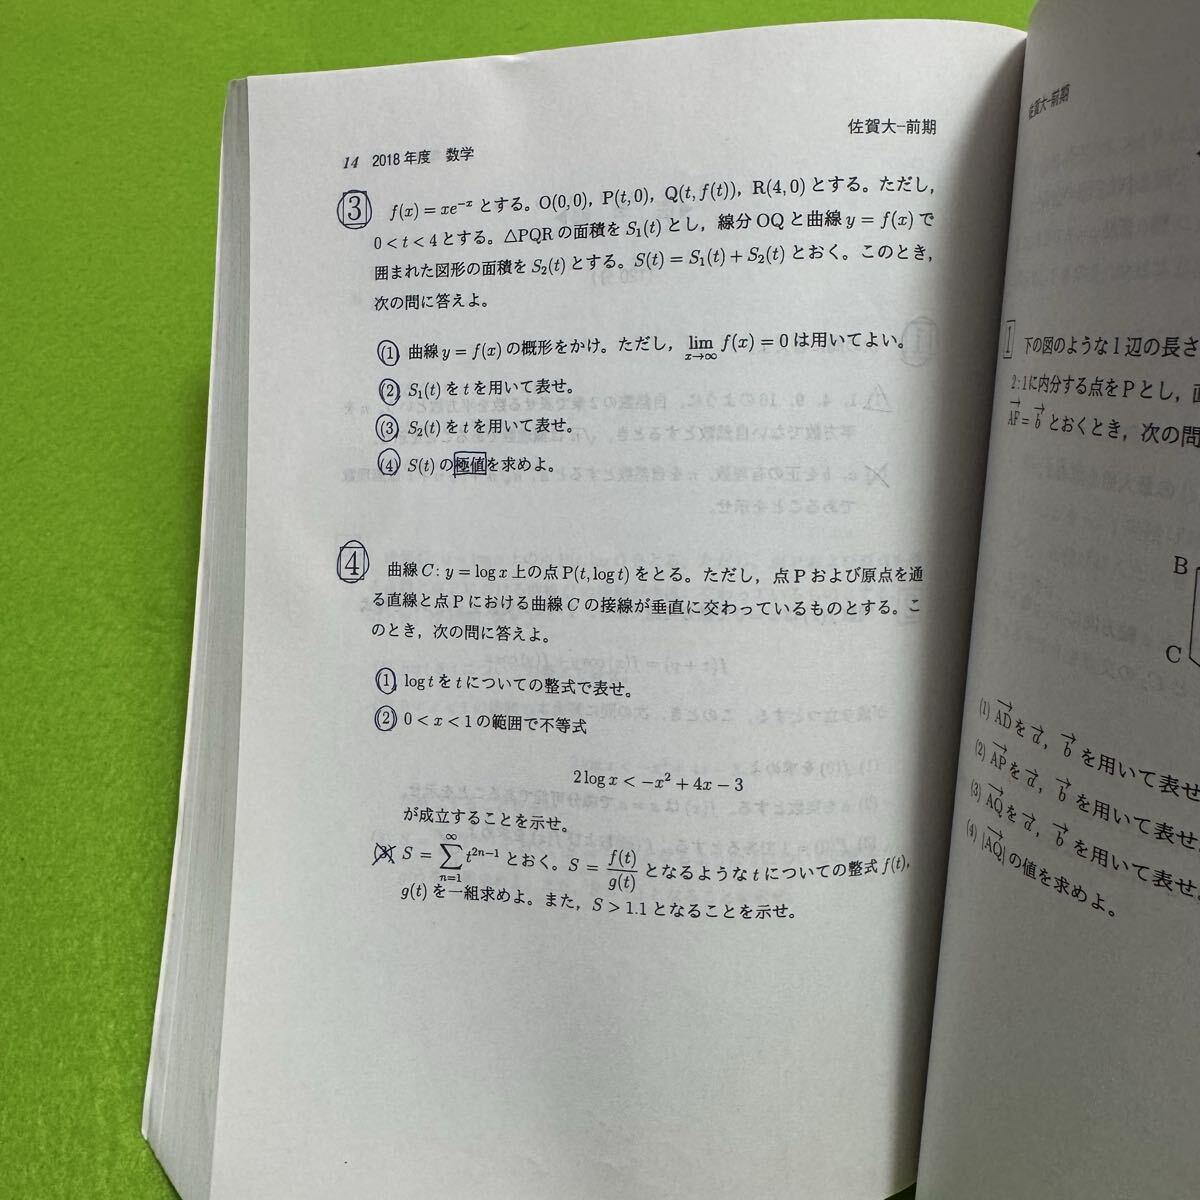 佐賀大-前期
14 2018年度 数学
3 f(x) = xe^{-x} とする。O(0, 0), P(t, 0), Q(t, f(t)), R(4, 0) とする。ただし,
0 < t < 4 とする。△PQR の面積を S₁(t) とし, 線分 OQ と曲線 y = f(x) で
囲まれた図形の面積を S₂(t) とする。S(t) = S₁(t) + S₂(t) とおく。このとき,
次の問に答えよ。
(1) 曲線 y = f(x) の概形をかけ。ただし, lim_{x→∞} f(x) = 0 は用いてよい。
(2) S₁(t) を t を用いて表せ。
(3) S₂(t) を t を用いて表せ。
(4) S(t) の極値を求めよ。
4 曲線 C : y = log x 上の点 P(t, log t) をとる。ただし, 点 P および原点を通
る直線と点 P における曲線 C の接線が垂直に交わっているものとする。こ
のとき, 次の問に答えよ。
(1) log t を t についての整式で表せ。
(2) 0 < x < 1 の範囲で不等式
2 log x < −x² + 4x − 3
が成立することを示せ。
(3) S = ∑_{n=1}^{∞} t^{2n−1} とおく。S = f(t)/g(t) となるような t についての整式 f(t),
g(t) を一組求めよ。また, S > 1.1 となることを示せ。
佐賀大-前期
1 下の図のような1辺の長さ
2:1に内分する点をPとし,
AF→ = b→ とおくとき, 次の問
B
C
(1) AD→ を a→, b→ を用いて表せ
(2) AP→ を a→, b→ を用いて表せ
(3) AQ→ を a→, b→ を用いて表せ。
(4) |AQ→| の値を求めよ。